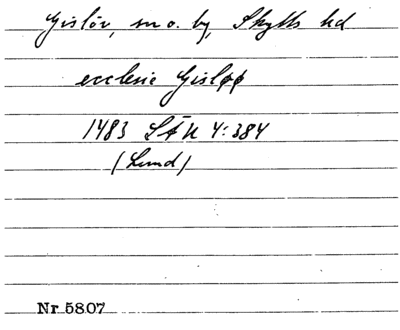 Gislöv, sn o. by, Skytts hd
ecclesie Gisløø
1483 SÅU 4:384
(Lund)
Nr 5807